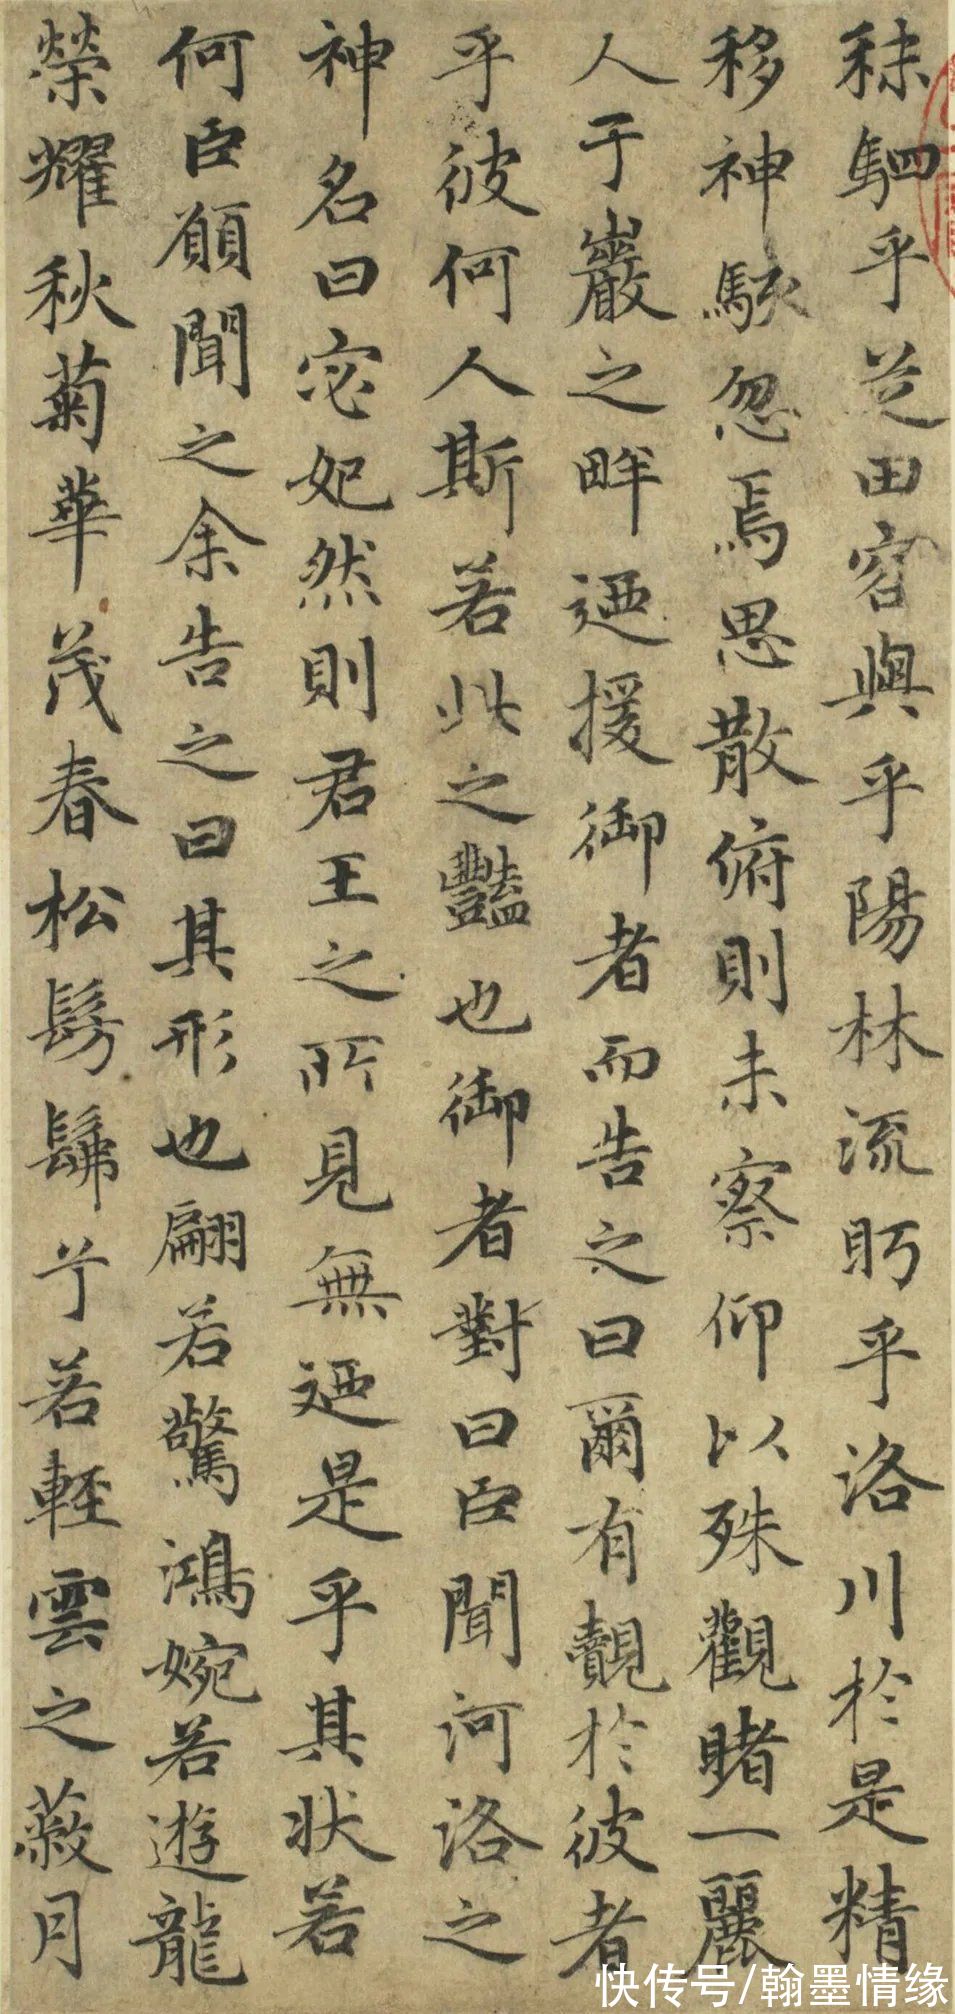 秣駟乎芝田容與乎陽林流眄乎洛川於是精
移神駭忽焉思散俯則未察仰以殊觀睹一麗
人于巖之畔迺援御者而告之曰爾有覿於彼者
乎彼何人斯若此之豔也御者對曰臣聞河洛之
神名曰宓妃然則君王之所見無迺是乎其狀若
何臣願聞之余告之曰其形也翩若驚鴻婉若遊龍
榮耀秋菊華茂春松髣髴兮若輕雲之蔽月
快传号/翰墨情缘